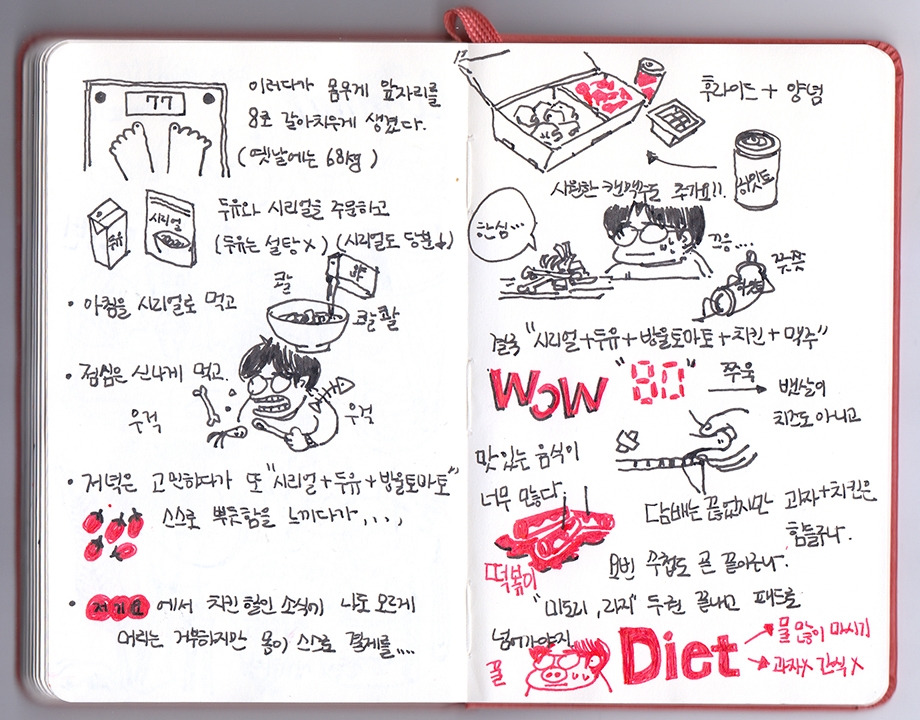 77
이러다가 몸무게 앞자리를
8로 갈아치우게 생겼다.
(옛날에는 68kg)
두유
시리얼
두유와 시리얼을 주문하고
(두유는 설탕X) (시리얼도 당분↓)
• 아침을 시리얼로 먹고
콸
콸콸
• 점심은 신나게 먹고.
우걱
우걱
• 저녁은 고민하다가 또 "시리얼+두유+방울토마토"
스스로 뿌듯함을 느끼다가....
• 저기요 에서 치킨 할인 소식이 나도 모르게
머리는 거부하지만 몸이 스스로 결제를....
후라이드 + 양념
하잇트
시원한 캔맥주도 추가요!!
한심...
끄응....
쭈쭈
결국 "시리얼+두유+방울토마토+치킨+맥주"
WOW "80" 쭈욱 → 뱃살이
치즈도 아니고
맛있는 음식이
너무 많다
떡볶이
담배는 끊었지만 과자+치킨은
힘들구나.
요번 수첩도 곧 끝이구나.
"미도리, 라지" 두권 끝내고 패드로
넘어가야지
꿀
Diet
물 많이 마시기
과자X 간식X